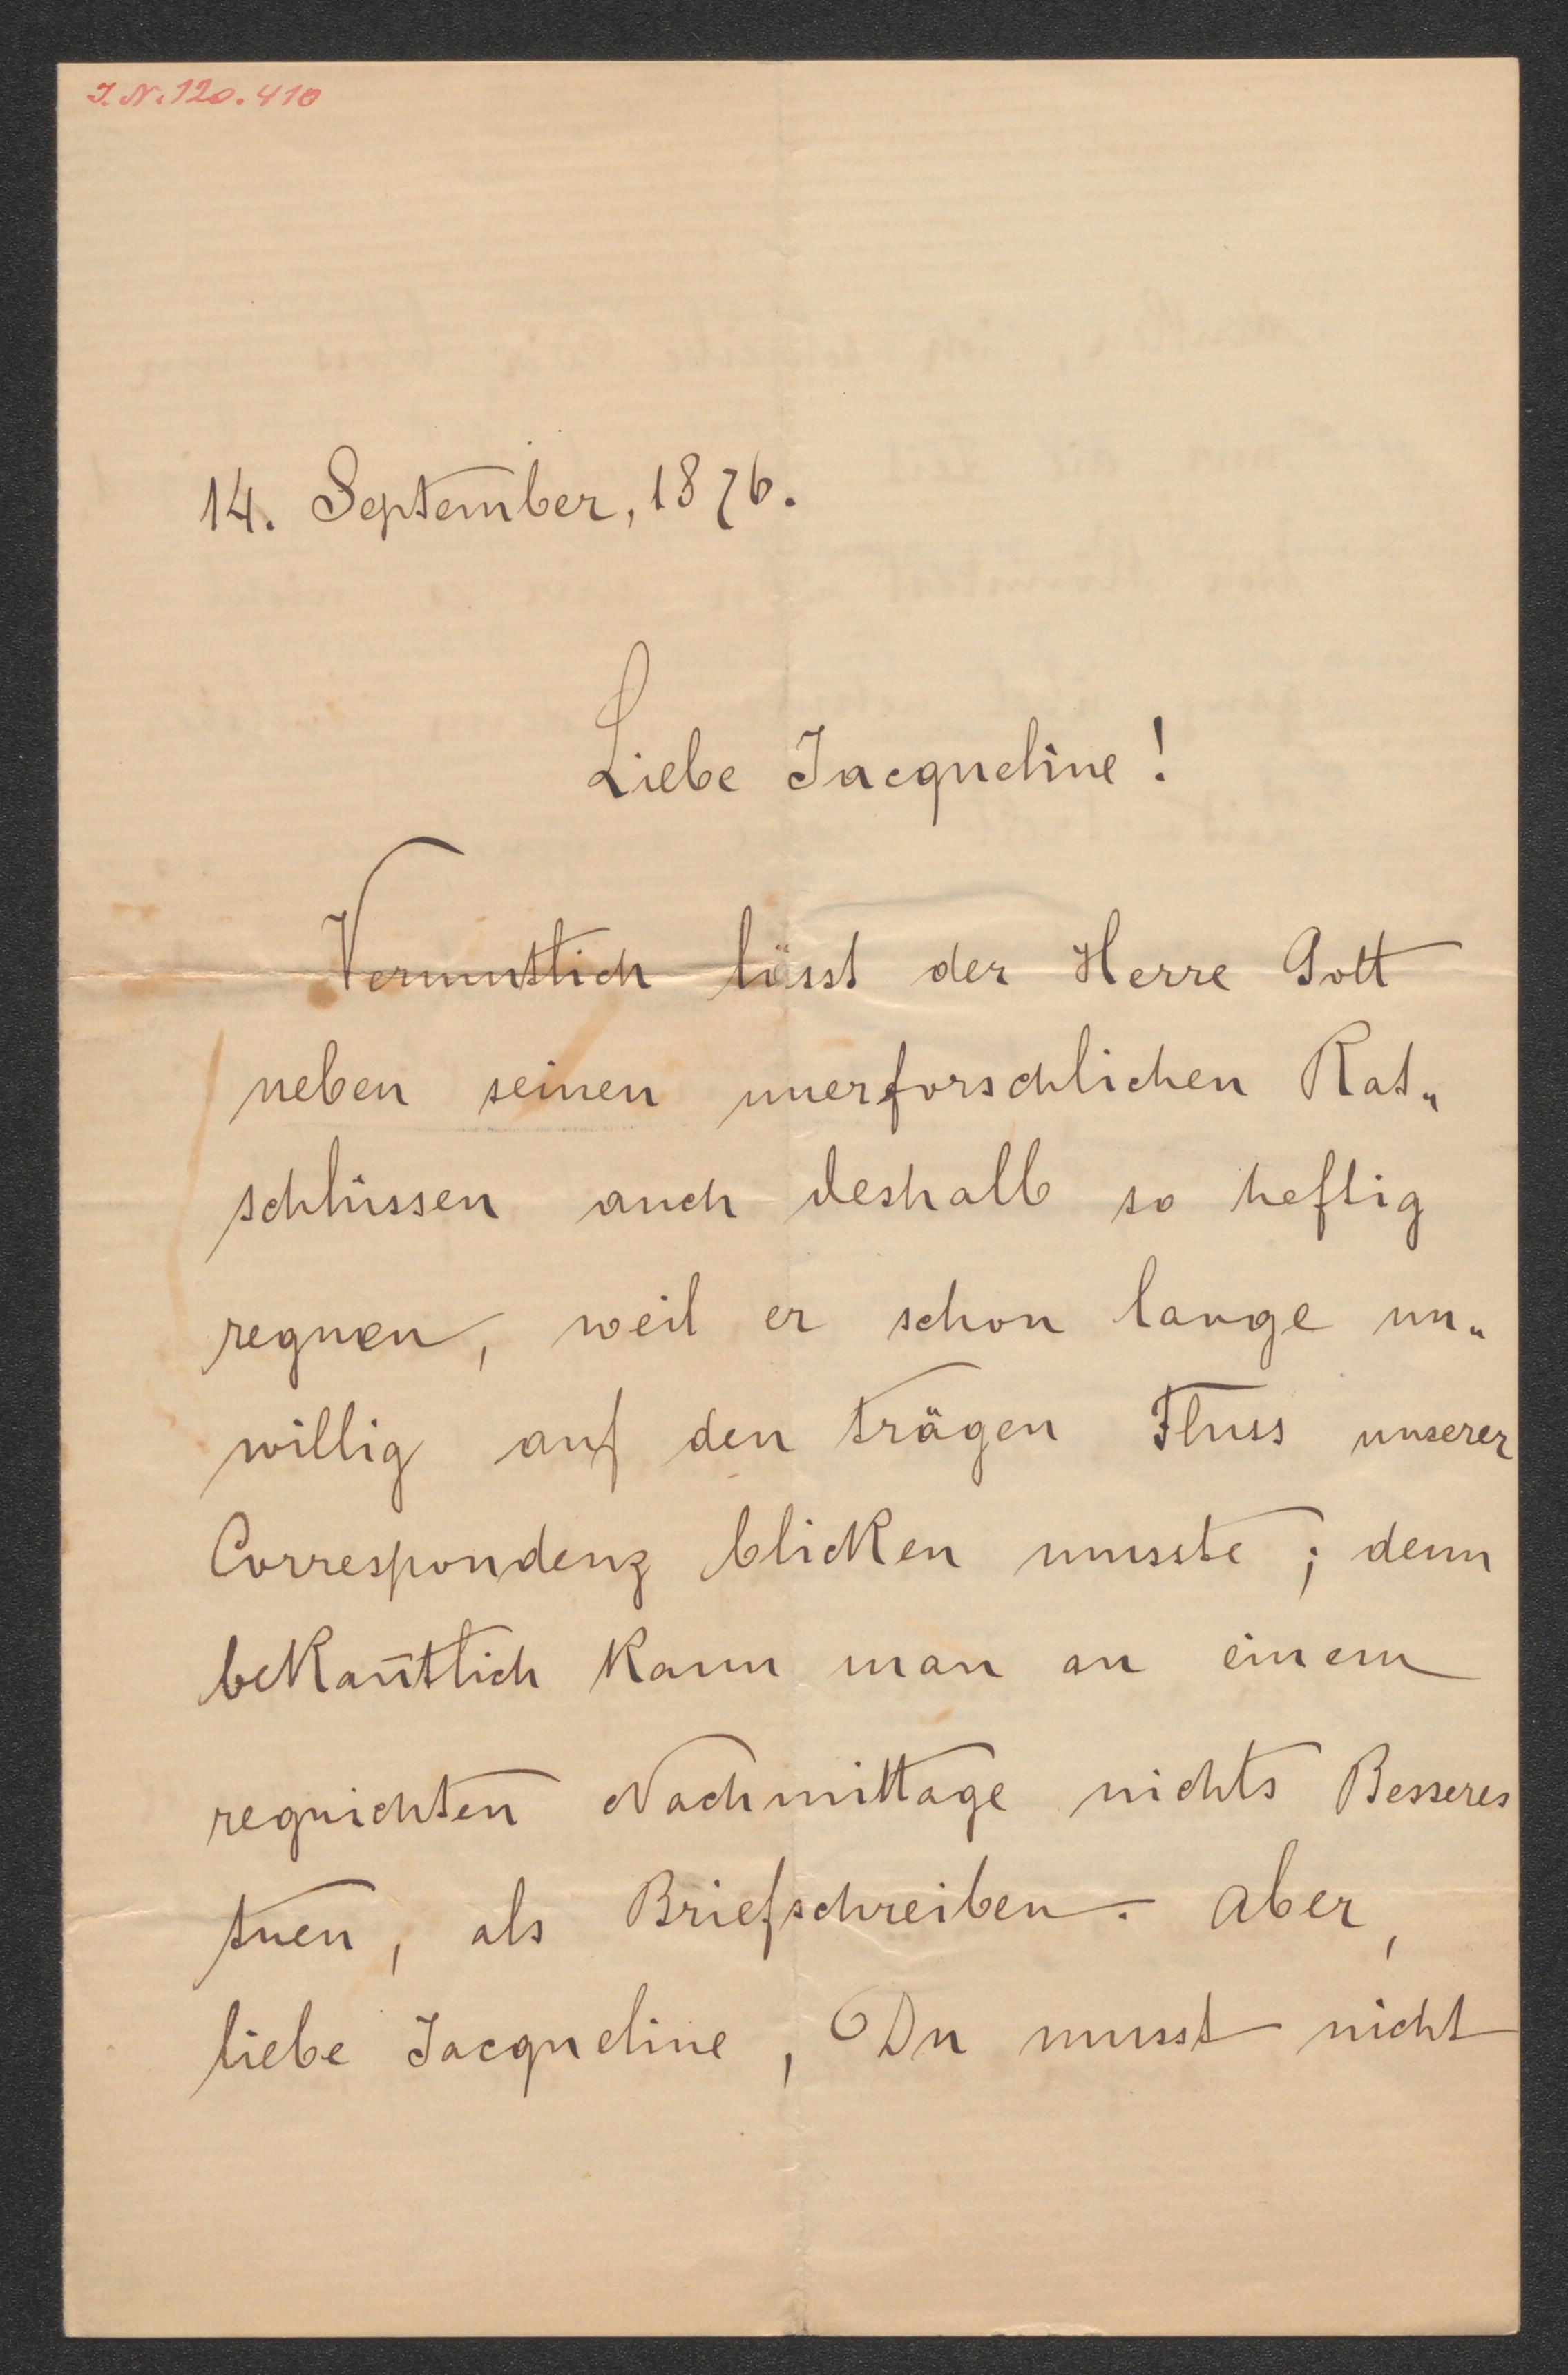 I. N. 120.410
14. September, 1876.
Liebe Jacqueline!
Vermutlich lässt der Herre Gott
neben seinen unerforschlichen Rat„
schlüssen auch deshalb so heftig
regnen, weil er schon lange un„
willig auf den trägen Fluss unserer
Correspondenz blicken musste; denn
bekan̅tlich kann man an einem
regnichten Nachmittage nichts Besseres
tuen, als Briefschreiben. Aber,
liebe Jacqueline, Du musst nicht